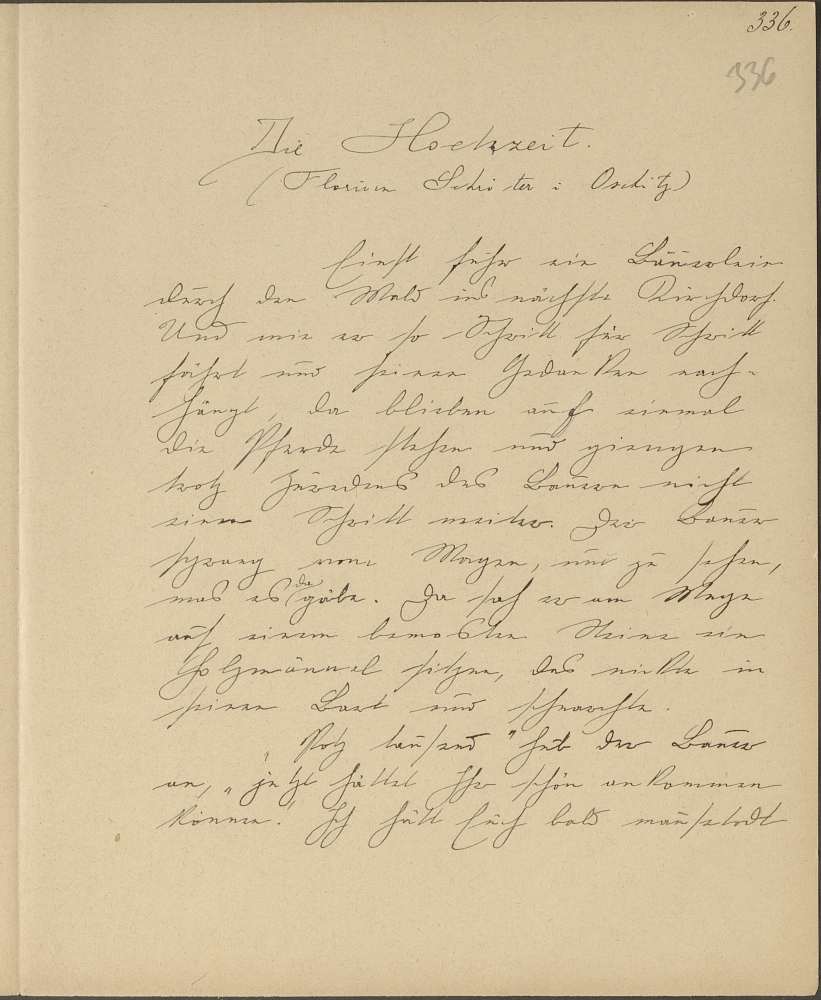 336.
336
Die Hochzeit.
(Florian Schröter : Oschitz)
Einst fuhr ein Bäuerlein
durch den Wald ins nächste Kirchdorf.
Und wie er so Schritt für Schritt
fährt und seinen Gedanken nach-
hängt, da blieben auf einmal
die Pferde stehen und giengen
trotz Zuredens des Bauern nicht
einen Schritt weiter. Der Bauer
sprang vom Wagen, um zu sehen,
was es da gäbe. Da sah er am Wege
auf einem bemoosten Steine ein
Holzmännel sitzen, das nickte in
seinen Bart und schnarchte.
„Potz tausend" hub der Bauer
an, „jetzt hättet Ihr schön ankommen
können!" Ich hätt Euch bald mausetodt